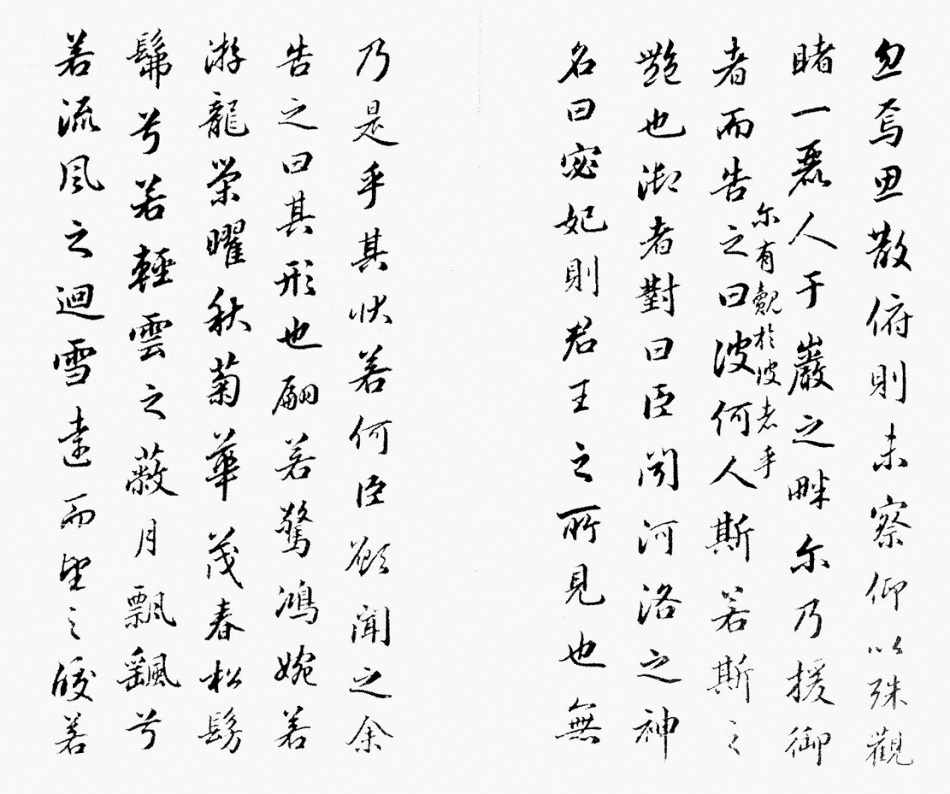 忽焉思散俯則未察仰以殊觀
睹一麗人于巖之畔尔乃援御
者而告之曰彼何人斯若斯之
尔有覿於彼者乎
艷也御者對曰臣聞河洛之神
名曰宓妃則君王之所見也無
乃是乎其状若何臣願聞之余
告之曰其形也翩若驚鴻婉若
游龍榮曜秋菊華茂春松髣
髴兮若輕雲之蔽月飄颻兮
若流風之迴雪遠而望之皎若